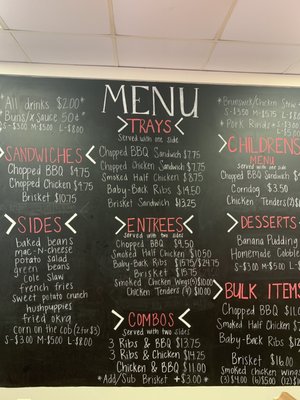 *All drinks $2.00*
*Buns/x Sauce 50¢*
S-$3.00 M-$5.00 L-$8.00
SANDWICHES
Chopped BBQ $4.75
Chopped Chicken $4.75
Brisket $10.75
SIDES
baked beans
mac-n-cheese
potato salad
green beans
Cole Slaw
french fries
sweet potato crunch
hushpuppies
fried okra
Corn on the Cob (2 for $3)
S-$3.00 M-$5.00 L-$8.00
MENU
TRAYS
Served with one side
Chopped BBQ Sandwich $7.75
Chopped Chicken Sandwich $7.75
Smoked Half Chicken $8.75
Baby-Back Ribs $14.50
Brisket Sandwich $13.25
ENTREES
Served with two sides
Chopped BBQ $9.50
Smoked Half Chicken $10.50
Baby-Back Ribs $15.75/$24.75
Brisket $15.75
Smoked Chicken Wings(4)$10.00
Chicken Tenders (4) $9.00
COMBOS
served with two sides
3 Ribs & BBQ $13.75
3 Ribs & Chicken $14.25
Chicken & BBQ $11.00
*Add/Sub Brisket +$3.00*
*Brunswick/Chicken Stew
S-$3.50 M-$5.75
*Pork Rinds*
CHILDRENS
MENU
Served with one side
Chopped BBQ Sandwich
Corndog $3.50
Chicken Tenders (2)
DESSERTS
Banana Pudding
Homemade Cobbler
S-$3.00 M-$5.00
BULK ITEMS
Chopped BBQ $11.0
Smoked Half Chicken
Baby-Back Ribs
Brisket $16.00
Smoked chicken wings
(3)$4.00 (6)$5.00 (12)